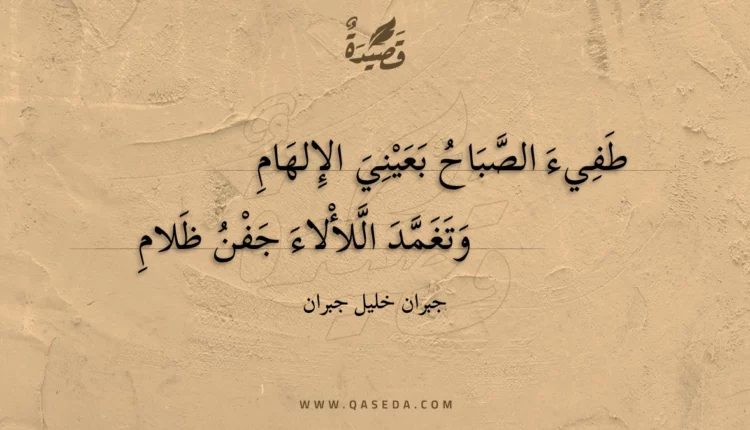 قَصِيْدَةٌ
طَفِيءَ الصَّبَاحُ بَعَيْنِيَ الإِلهَامِ
وَتَغَمَّدَ الَّلأْلاءَ جَفْنُ ظَلامِ
جبران خليل جبران
WWW.QASEDA.COM